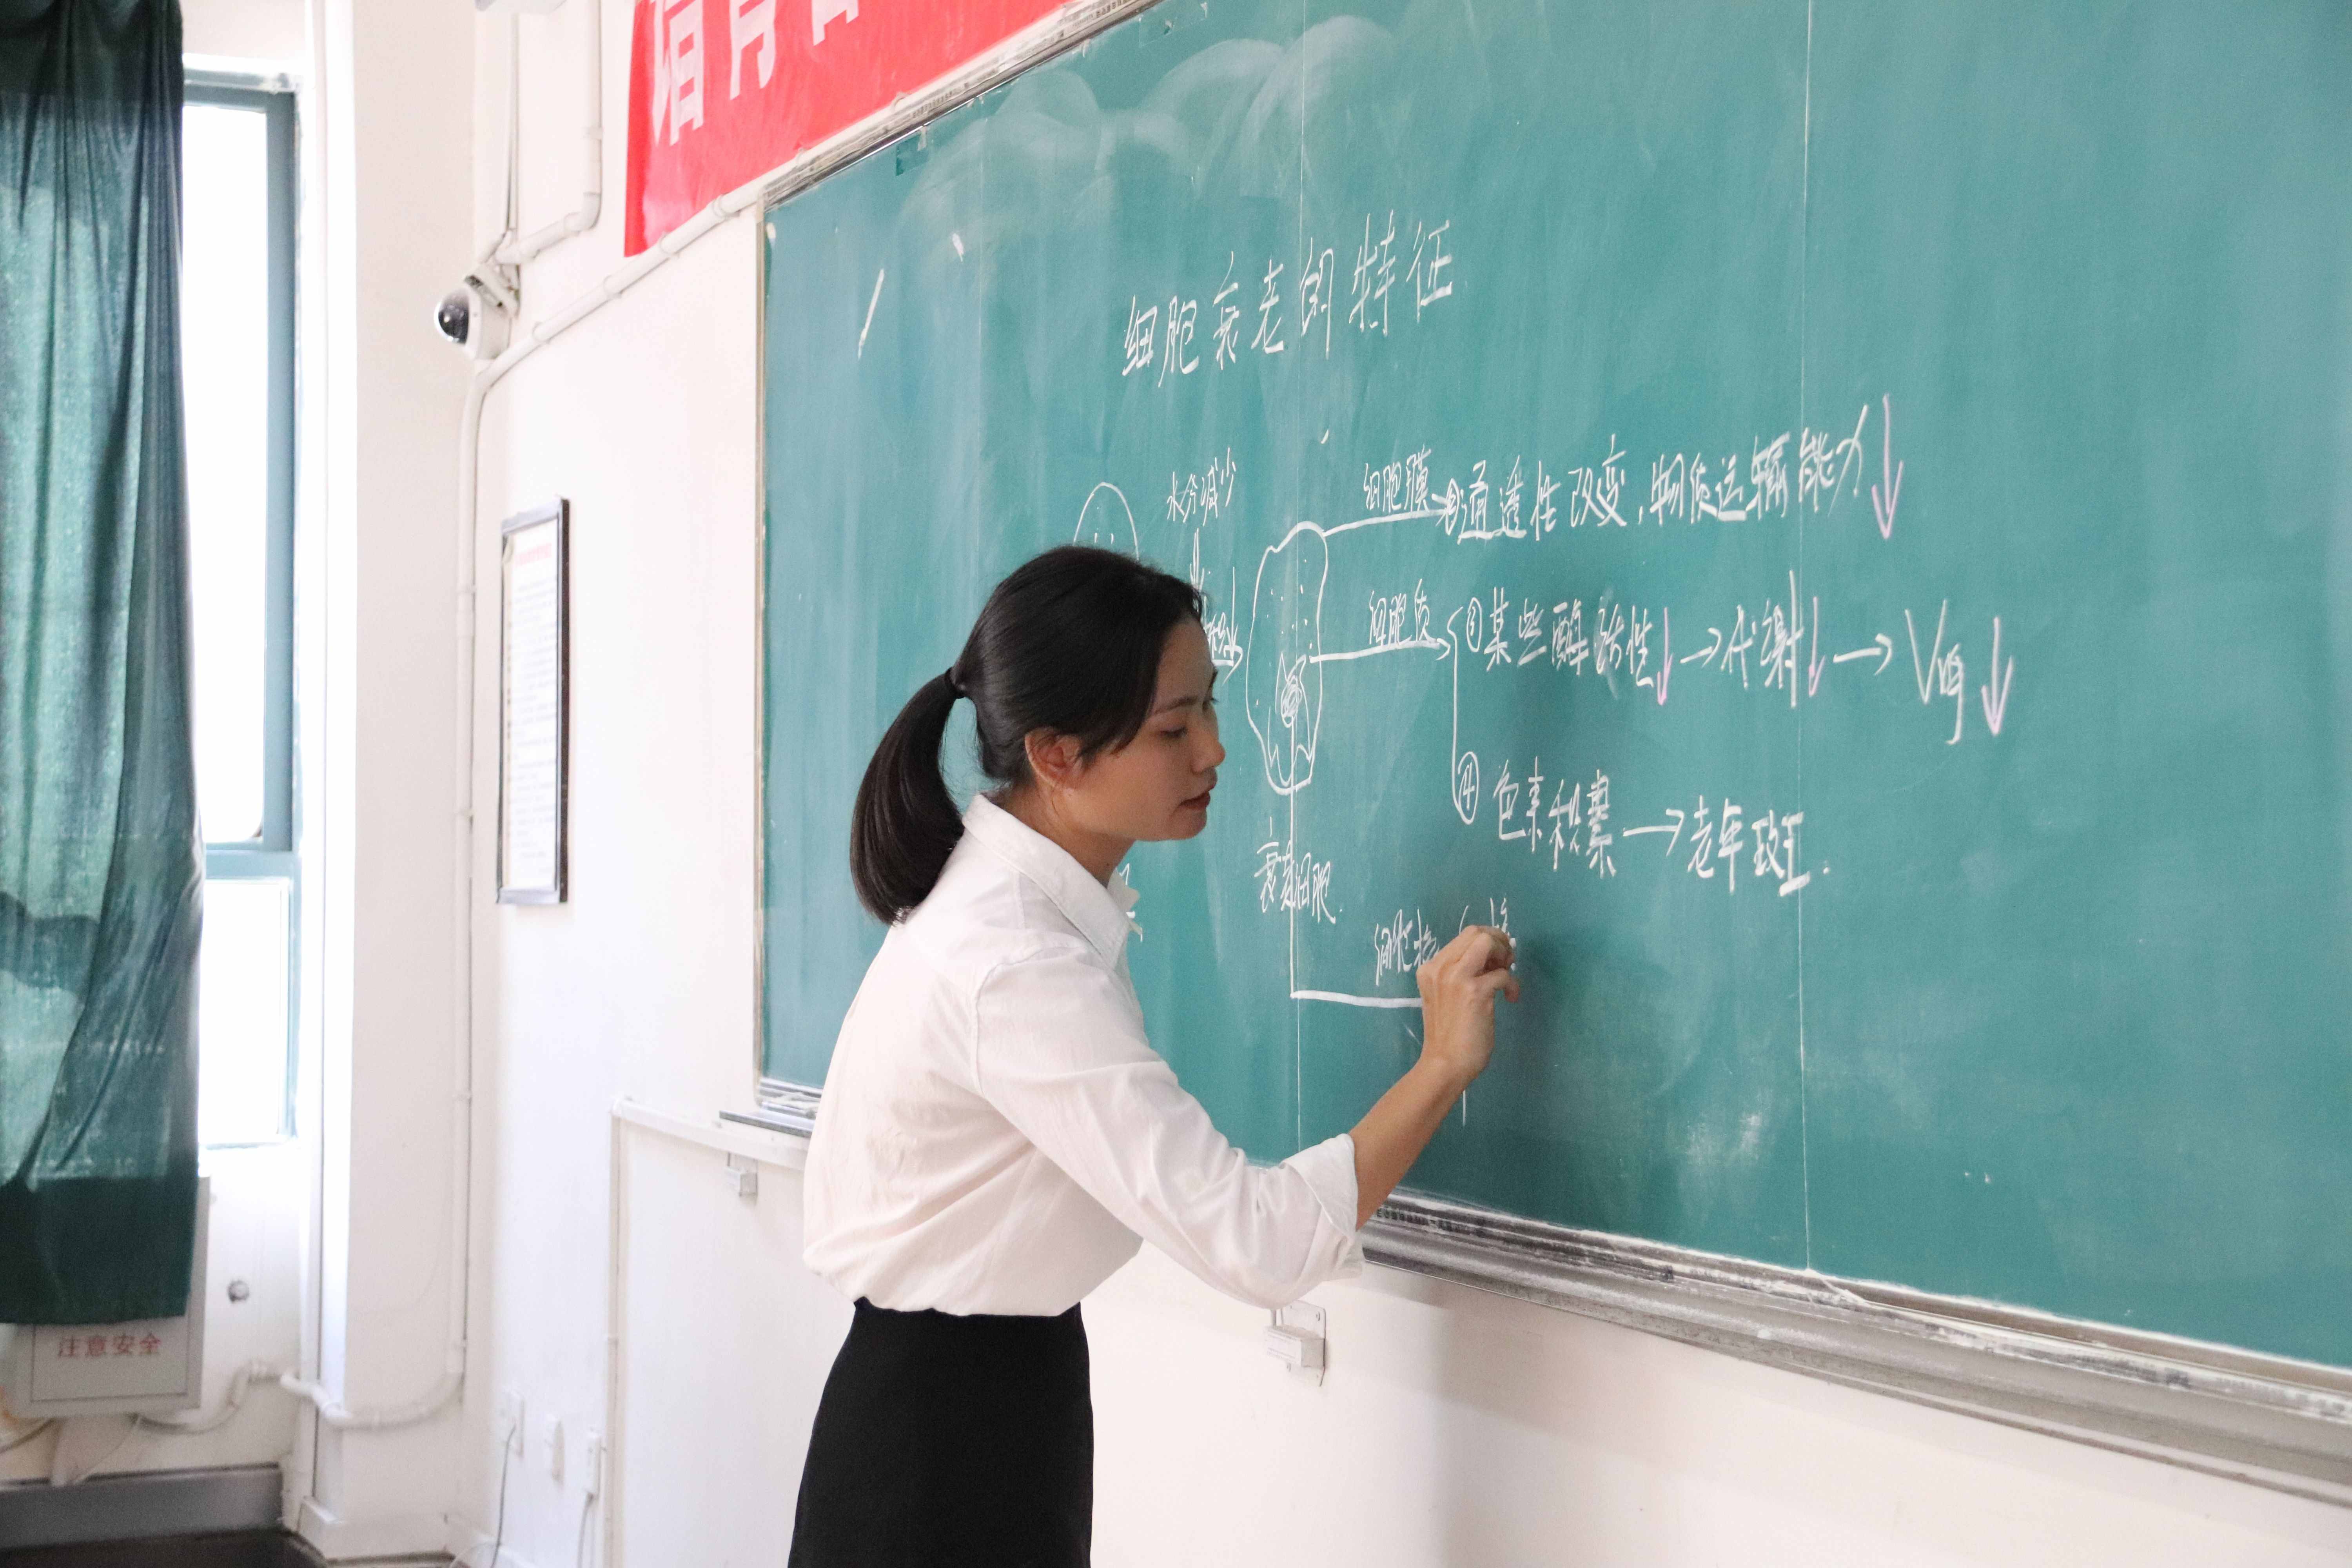 细胞衰老的特征
水分减少
细胞膜 ② 通透性改变,物质运输能力↓
细胞质 ③ 某些酶活性↓→代谢↓→V呼↓
④ 色素积累→老年斑.
衰老细胞.
细胞核
注意安全